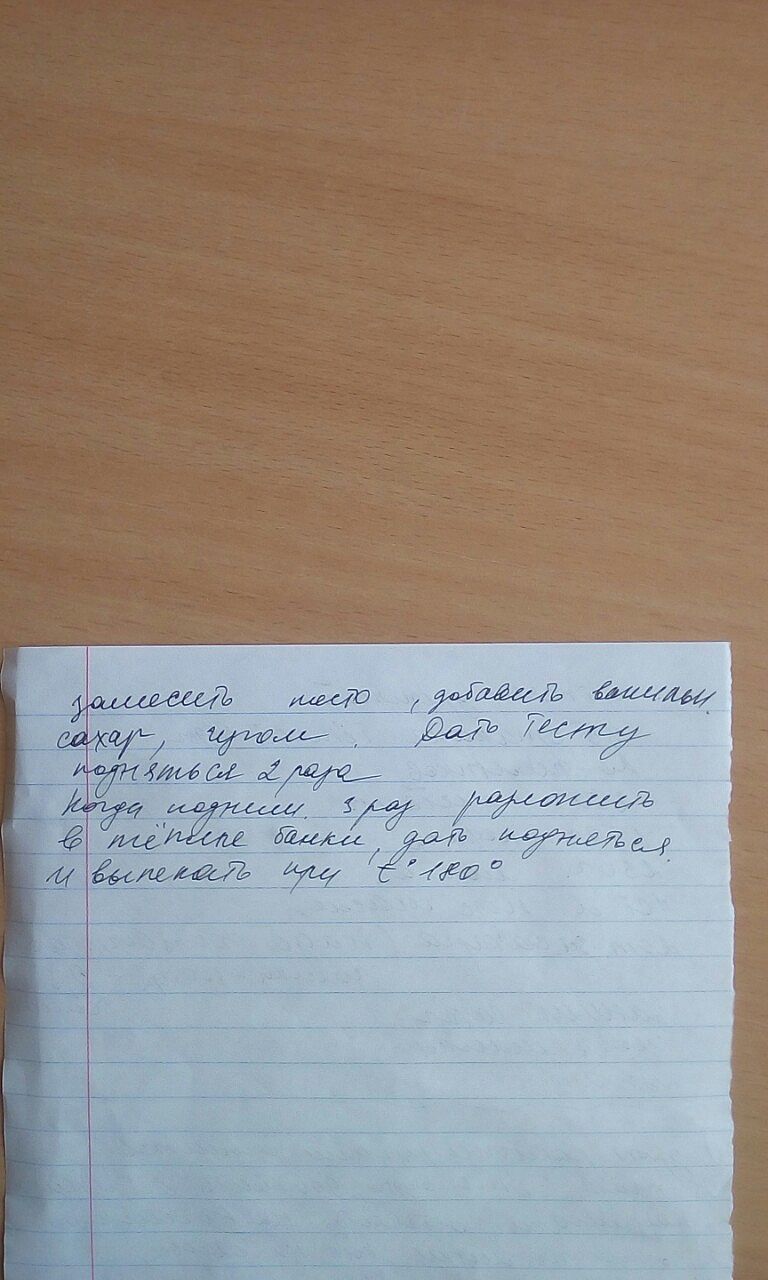 замесить тесто, добавить ванильн.
сахар, изюм. Дать тесту
подняться 2 раза
Когда подним. 3 раз разложить
в тёплые банки, дать подняться
и выпекать при t° 180°